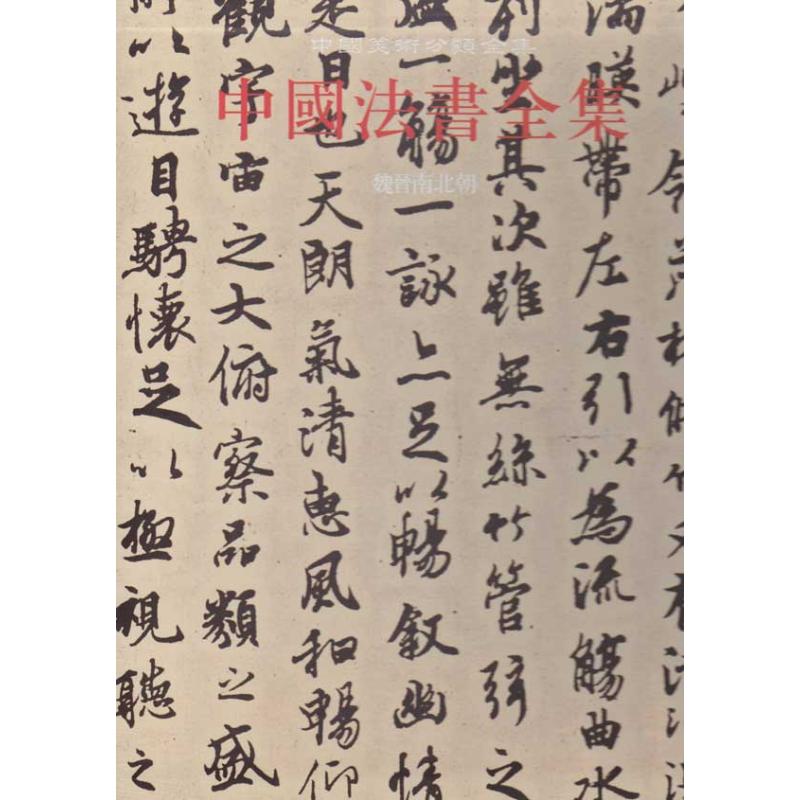 中國美術分類全集
中國法書全集
魏晉南北朝
峻領茂林修竹又有清流激
湍暎帶左右引以為流觴曲水
列坐其次雖無絲竹管弦之
盛一觴一詠亦足以暢敘幽情
是日也天朗氣清惠風和暢仰
觀宇宙之大俯察品類之盛
所以遊目騁懷足以極視聽之